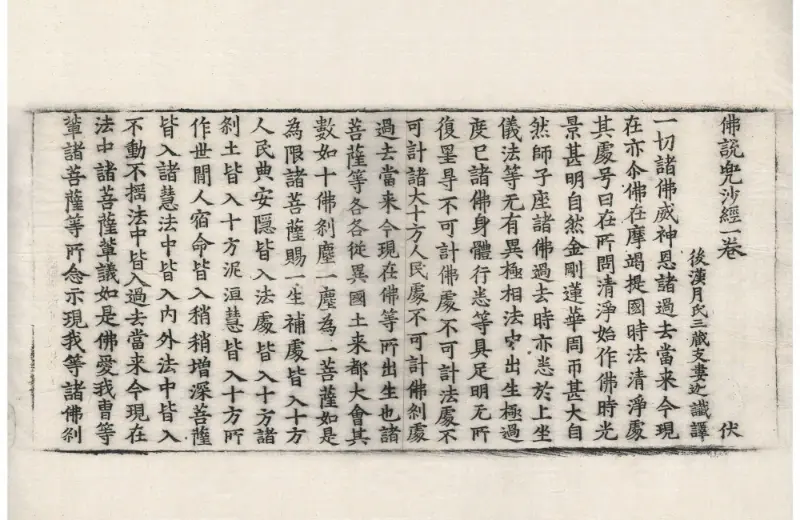 佛說兜沙經一卷 伏
後漢月氏三藏支婁迦讖譯
一切諸佛威神恩諸過去當来今現
在亦尒佛在摩竭提國時法清淨處
其處号曰在所問清淨始作佛時光
景甚明自然金剛蓮華周帀甚大自
然師子座諸佛過去時亦悉於上坐
儀法等无有異極相法中出生極過
度已諸佛身體行悉等具足明无所
復罣㝵不可計佛處不可計法處不
可計諸大十方人民處不可計佛剎處
過去當来今現在佛等所出生也諸
菩薩等各各從異國土来都大會其
數如十佛剎塵一塵為一菩薩如是
為限諸菩薩賜一生補處皆入十方
人民典安隱皆入法處皆入十方諸
剎土皆入十方泥洹慧皆入十方所
作世閒人宿命皆入稍稍增深菩薩
皆入諸慧法中皆入内外法中皆入
不動不摇法中皆入過去當来今現在
法中諸菩薩軰議如是佛愛我曹等
軰諸菩薩等所念示現我等諸佛剎